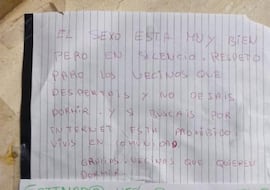 EL SEXO ESTA MUY BIEN
PERO EN SILENCIO. RESPETO
PARA LOS VECINOS QUE
DESPERTAIS Y NO DEJAIS
DORMIR. Y SI BUSCAIS POR
INTERNET ESTA PROHIBIDO
VIVIS EN COMUNIDAD.
GRACIAS. VECINOS QUE QUIEREN
DORMIR.